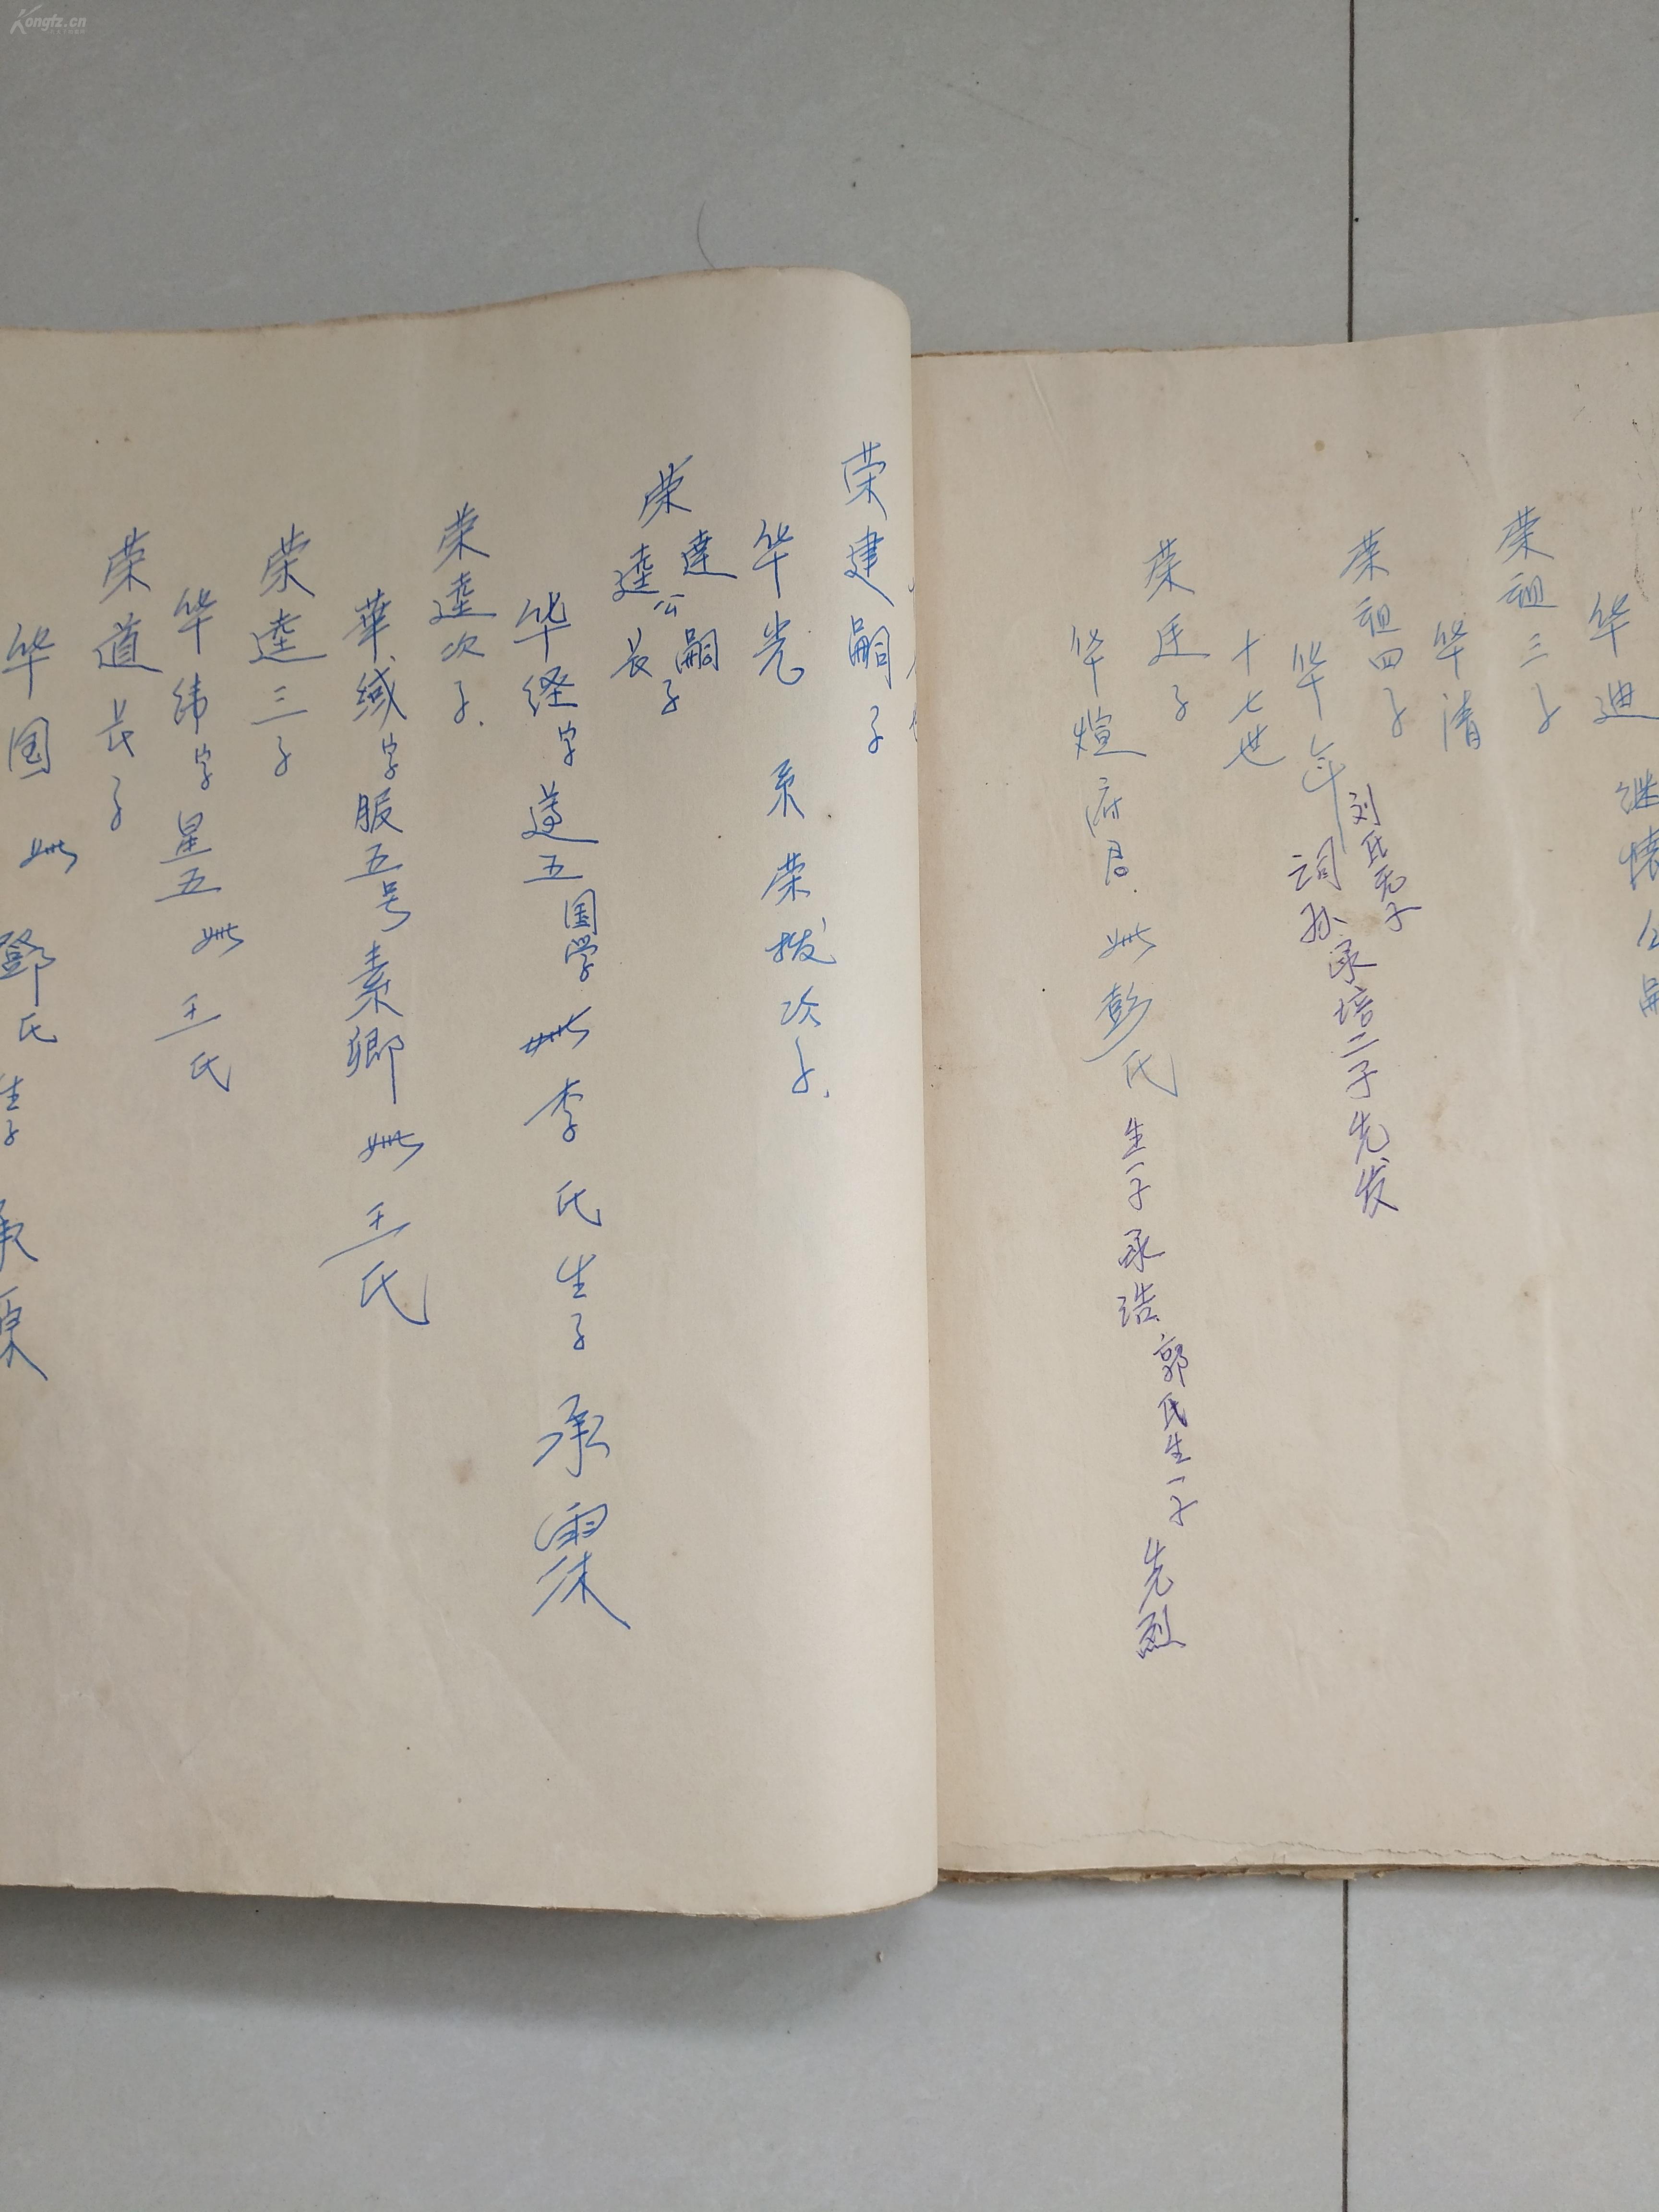 华迪 继懐公嗣
荣祖三子
华清
荣祖四子
华年 刘氏无子 词孙承培二子先发
十七世
荣廷子
华煊府君 妣彭氏 生一子承浩 郭氏生一子 先烈
荣建嗣子
华光 系荣拨次子.
荣达嗣子
逵公长
华经字遵五 国学 妣李氏生子 承霖
荣逵次子.
華緎字服五号素卿 妣王氏
荣逵三子
华纬字星五 妣王氏
荣道长子
华国 妣 鄧氏 生子
Kongfz.cn